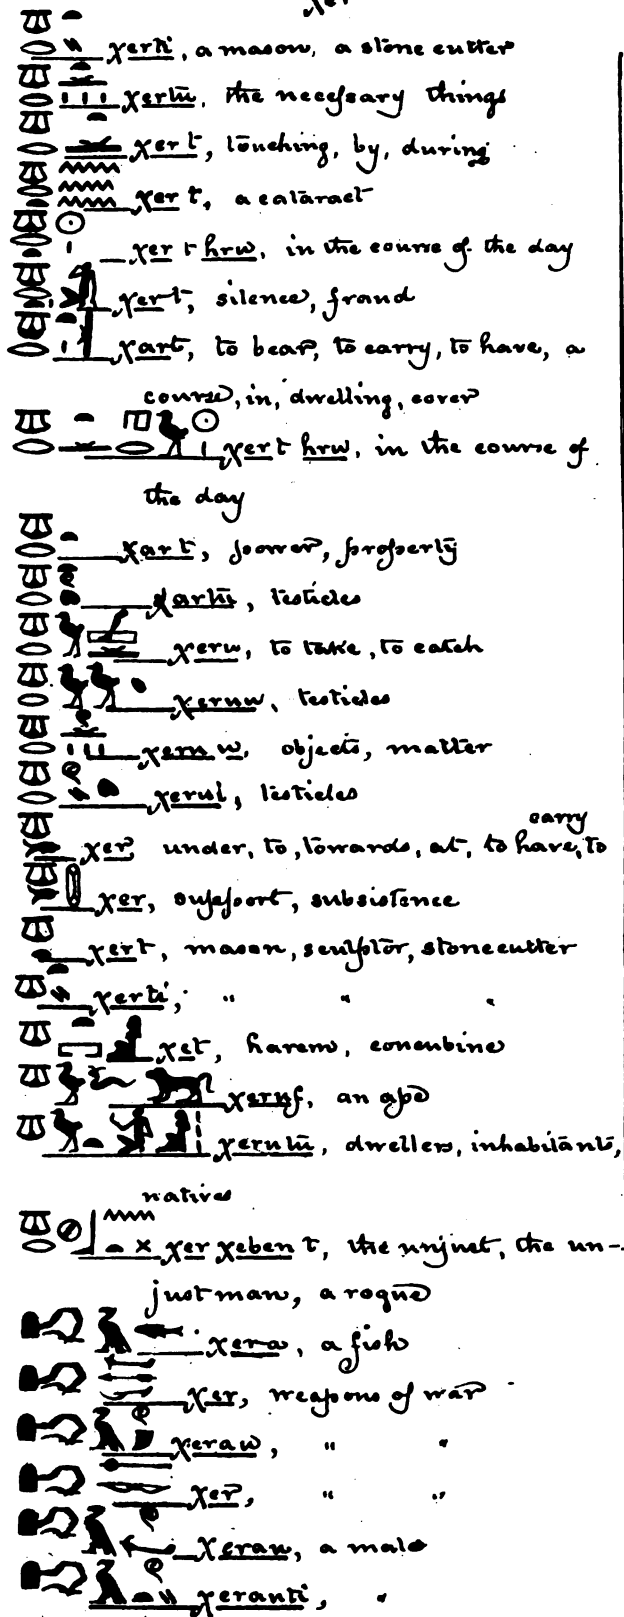 χerti, a mason, a stone cutter
χertu, the necessary things
χer t, touching, by, during
χer t, a cataract
χer t hrw, in the course of the day
χer t, silence, fraud
χart, to bear, to carry, to have, a
course, in, dwelling, cover
χer t hrw, in the course of
the day
χar t, power, property
testicles
χerw, to take, to catch
testicles
objects, matter
testicles
carry
χer, under, to, towards, at, to have, to
χer, support, subsistence
χert, mason, sculptor, stonecutter
χerti, " " "
χet, harem, concubine
χeruf, an ape
dwellers, inhabitants,
natives
χer χeben t, the unjust, the un-
just man, a rogue
χera, a fish
χer, weapons of war
χeraw, " "
χer, " "
a male
χeranti, "